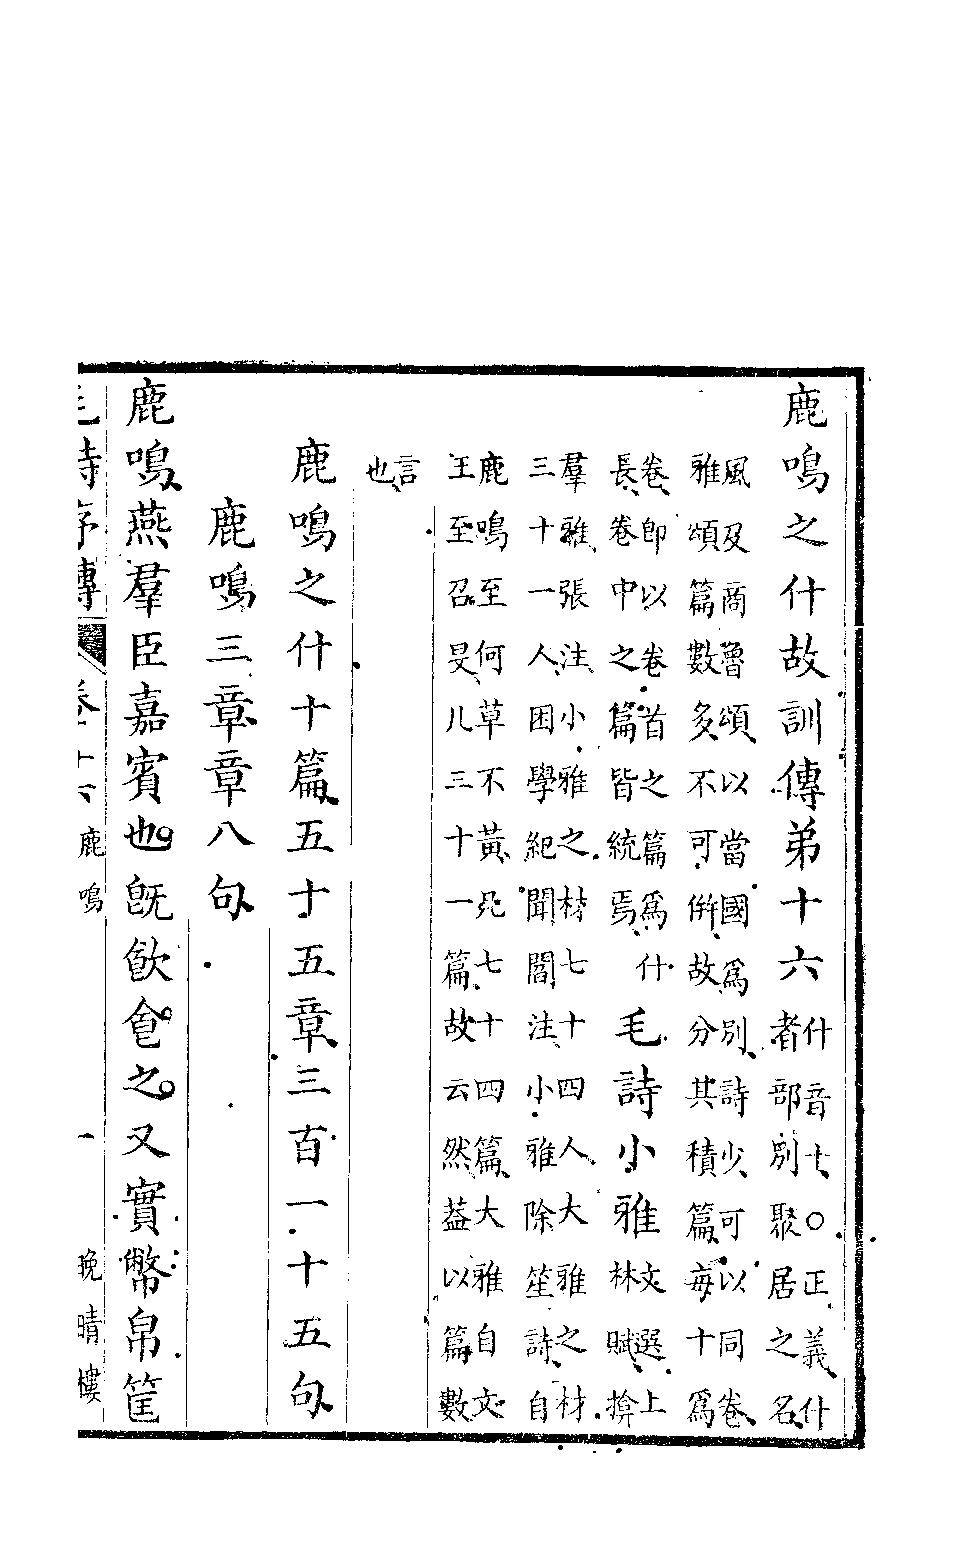 鹿鳴之什故訓傳弟十六什音十○正義什
者部別聚居之名
風及商魯頌以當國爲別詩少可以同卷
雅頌篇數多不可併故分其積篇每十爲
卷卽以卷首之篇爲什
長卷中之篇皆統焉
毛詩小雅文選上
林賦揜
羣雅張注小雅之材七十四人大雅之材
三十一人困學紀聞閻注小雅除笙詩自
鹿鳴至何草不黃凡七十四篇大雅自文
王至召旻凡三十一篇故云然葢以篇數
言
也
鹿鳴之什十篇五十五章三百一十五句
鹿鳴三章章八句
鹿鳴燕羣臣嘉賓也旣飮食之又實幣帛筐
毛詩序傳 卷十六 鹿鳴 一 晚晴樓